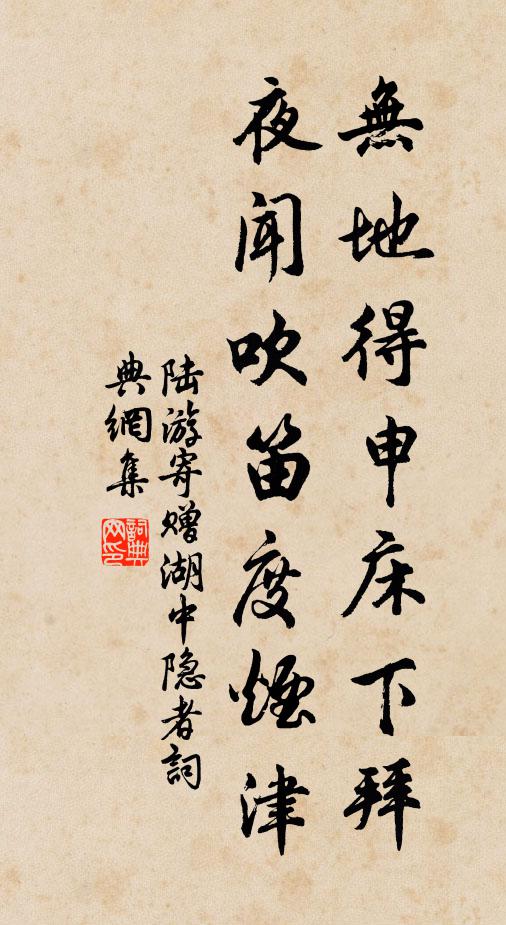 無地得申床下拜
夜闻吹笛度煙津
陆游寄赠湖中隐者詞
典網集
詞典網印